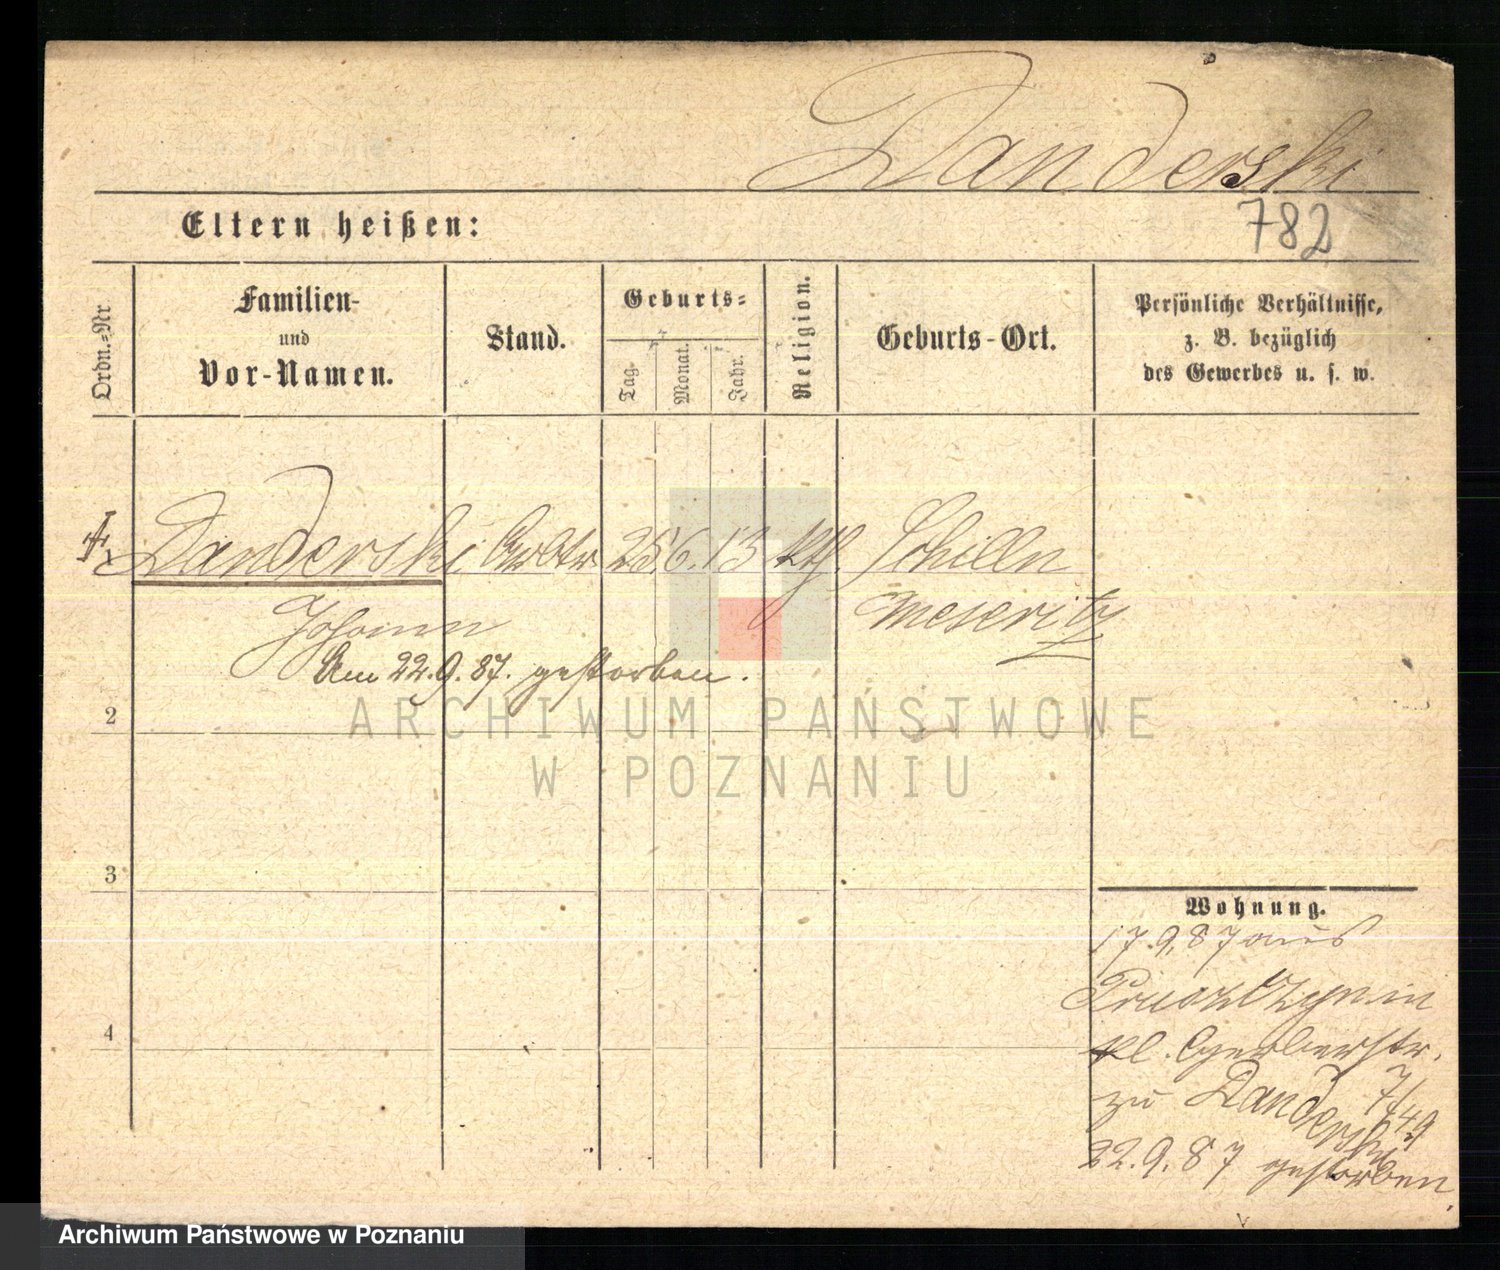 Danderski
782
Eltern heißen:
Ordn.-Nr
Familien-
und
Vor-Namen.
Stand.
Geburts-
Tag.
Monat.
Jahr.
Religion.
Geburts-Ort.
Persönliche Verhältnisse,
z. B. bezüglich
des Gewerbes u. s. w.
Danderski Arbtr 25.6.13 kth. Schilln
Johann Meseritz
Am 22.9.87. gestorben.
2
3
4
Wohnung.
17.9.87 aus
kl. Gerberstr.
zu Danderski 7/49
22.9.87 gestorben.
ARCHIWUM PAŃSTWOWE
W POZNANIU
Archiwum Państwowe w Poznaniu